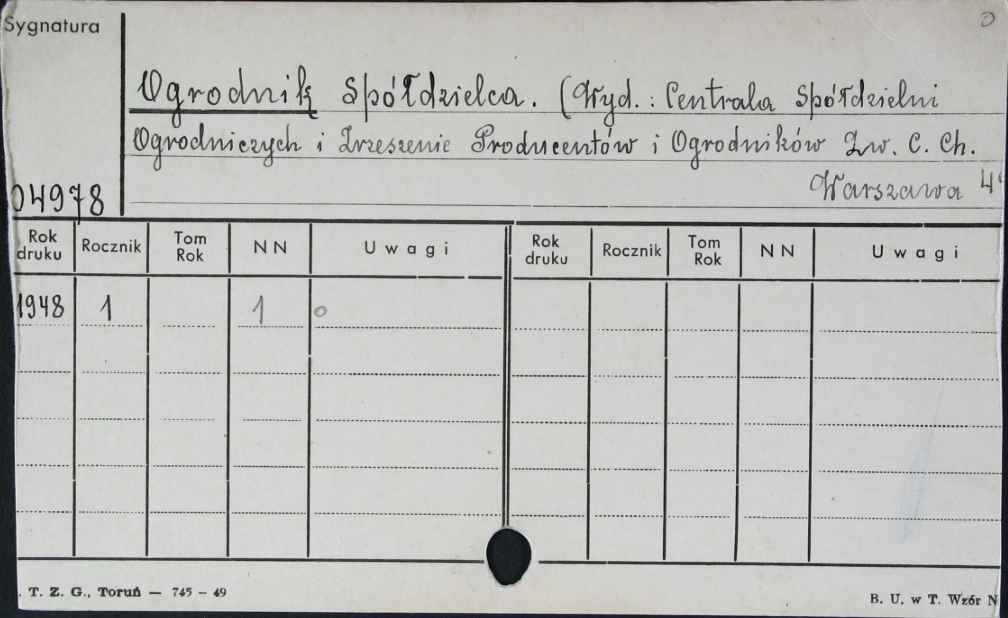 Sygnatura
Ogrodnik Spółdzielca. (Wyd.: Centrala Spółdzielni
Ogrodniczych i Zrzeszenie Producentów i Ogrodników Zw. C. Ch.
Warszawa 4
04978
Rok druku Rocznik Tom Rok NN Uwagi Rok druku Rocznik Tom Rok NN Uwagi
1948 1 1 o
. T. Z. G., Toruń — 745 – 49
B. U. w T. Wzór N